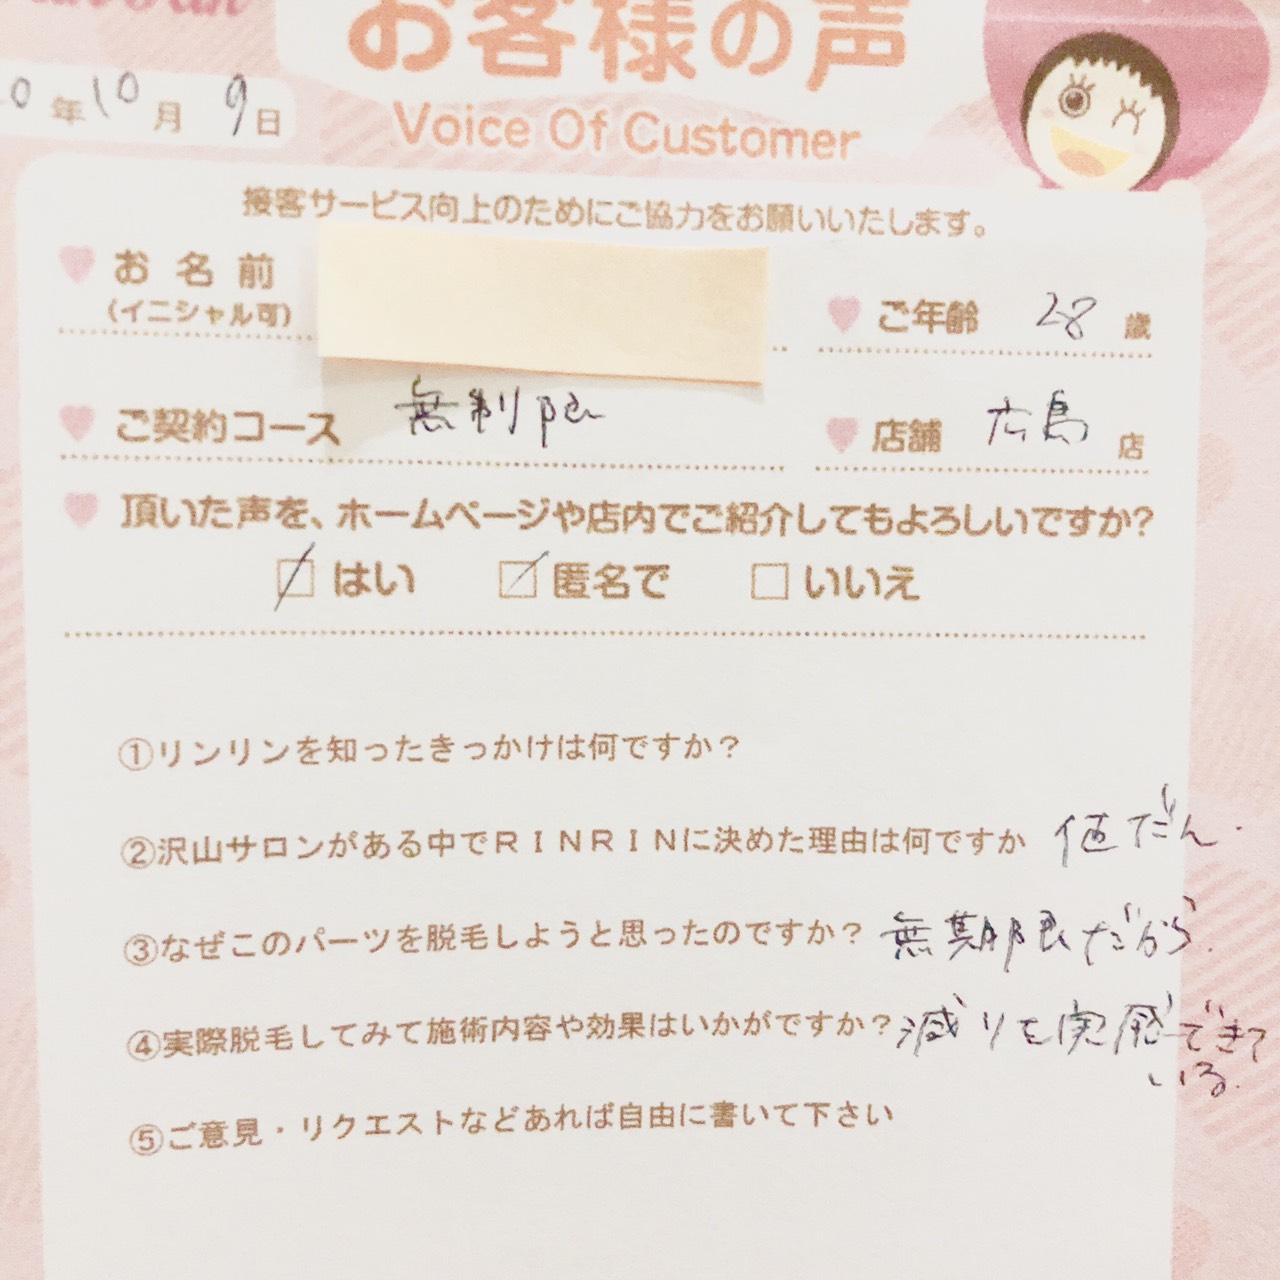 お客様の声
0年10月9日
Voice Of Customer
接客サービス向上のためにご協力をお願いいたします。
お名前
(イニシャル可)
ご年齢 28歳
ご契約コース 無制限
店舗 広島店
頂いた声を、ホームページや店内でご紹介してもよろしいですか?
はい 匿名で いいえ
①リンリンを知ったきっかけは何ですか?
②沢山サロンがある中でRINRINに決めた理由は何ですか 値だん.
③なぜこのパーツを脱毛しようと思ったのですか? 無期限だから.
④実際脱毛してみて施術内容や効果はいかがですか? 減りを実感できて
いる.
⑤ご意見・リクエストなどあれば自由に書いて下さい